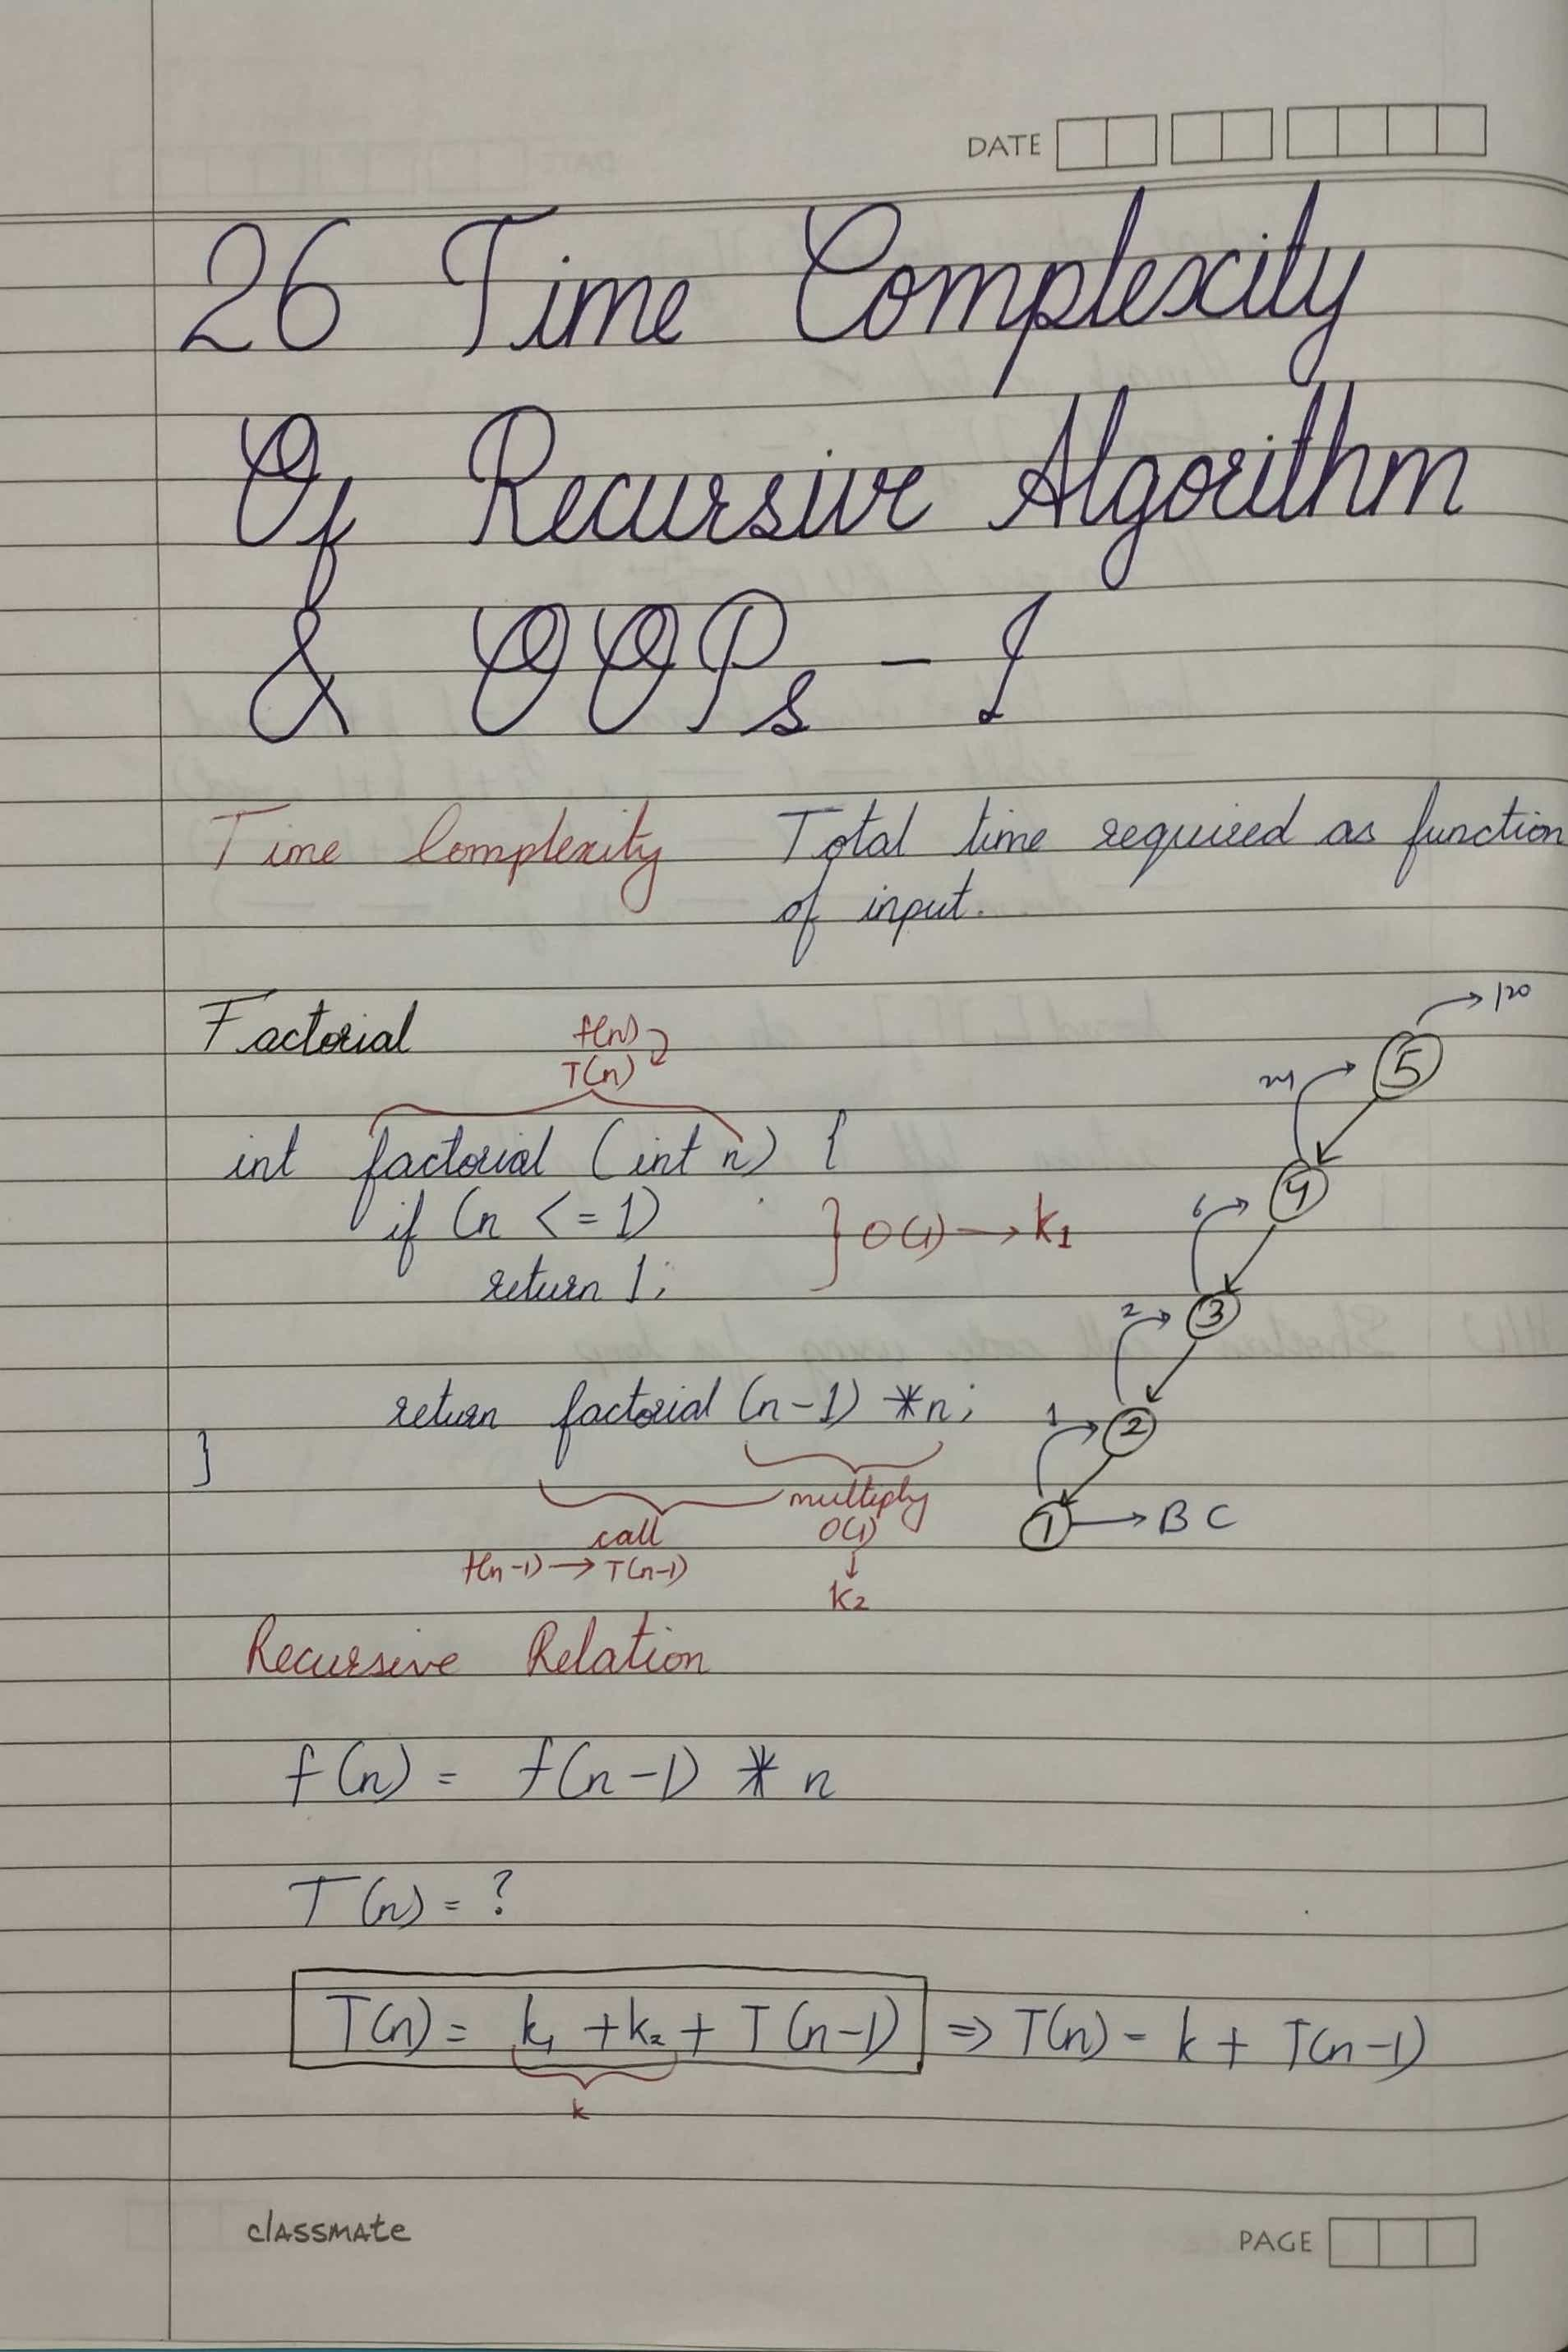 DATE
26 Time Complexity
Of Recursive Algorithm
& OOPs - I
Time Complexity Total time required as function
of input.
Factorial
f(n)
T(n)
int factorial (int n) {
if (n <= 1)
return 1;
} O(1) → k1
return factorial (n-1) *n;
}
call
f(n-1) → T(n-1)
multiply
O(1)
↓
k2
120
5
24
4
6
3
2
2
1
1 → BC
Recursive Relation
f(n) = f(n-1) * n
T(n) = ?
T(n) = k1 + k2 + T(n-1) ⇒ T(n) = k + T(n-1)
k
classmate
PAGE